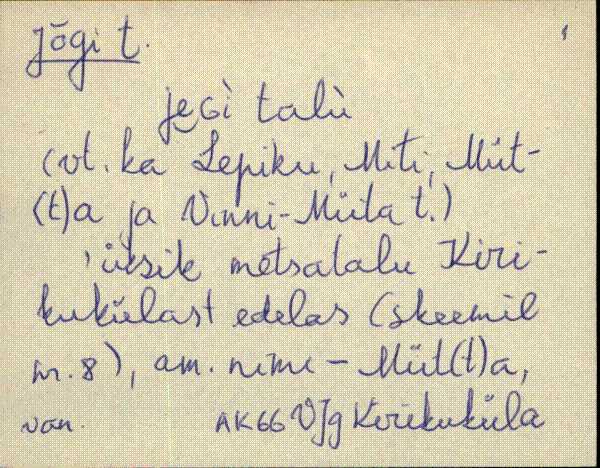 Jõgi t.
jeGì talù
(vt. ka Lepiku, Miti, Müt-
(t)a ja Vinni-Müta t.)
üksik metsatalu Kiri-
kukülast edelas (skeemil
nr. 8), am. nimi - Müt(t)a,
van. AK66 VJg Kirikuküla